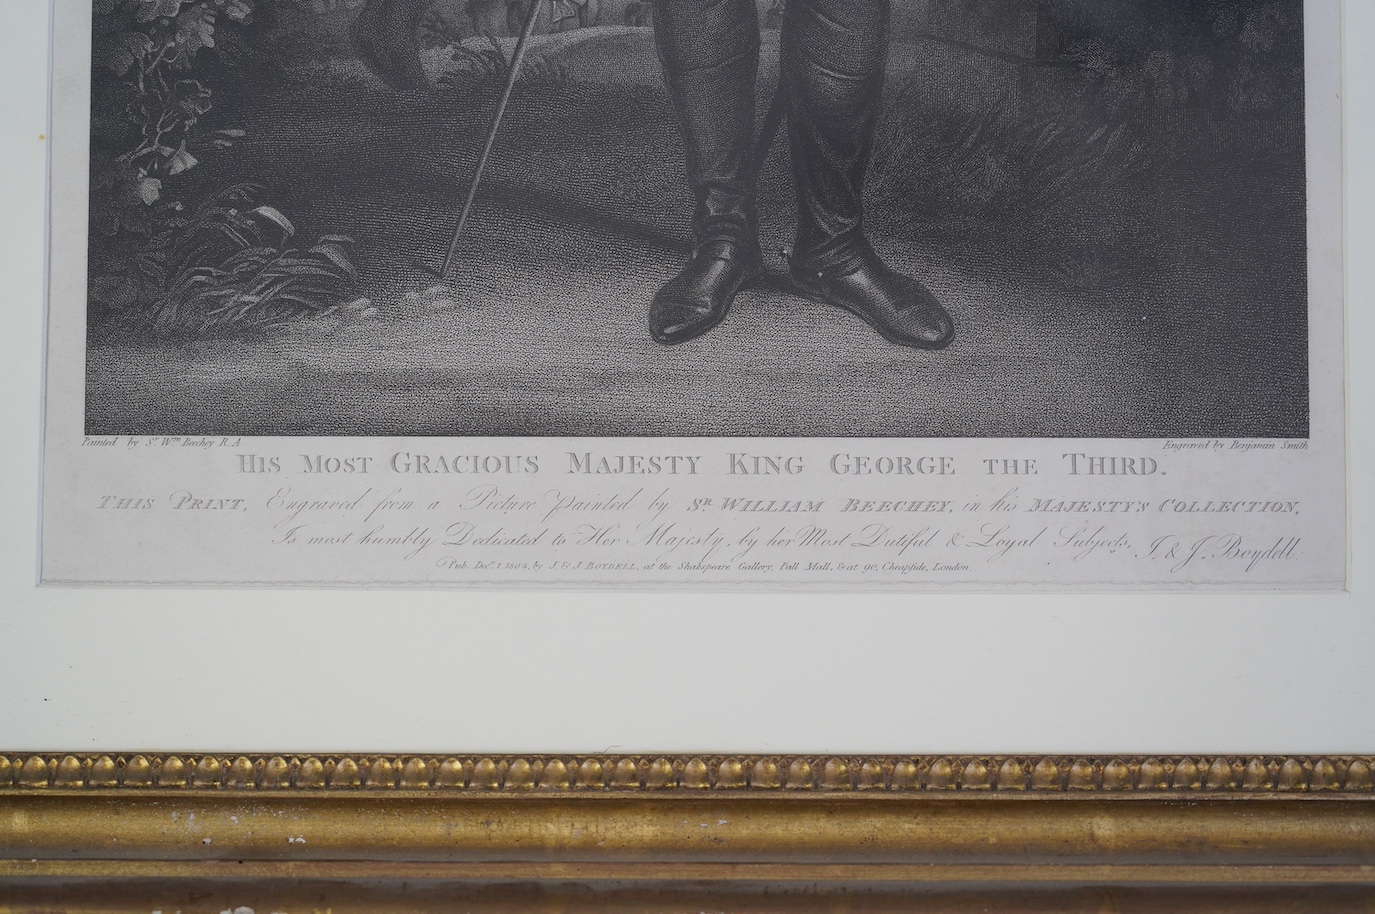 Painted by Sr. Wm. Beechey R.A
Engraved by Benjamin Smith
HIS MOST GRACIOUS MAJESTY KING GEORGE THE THIRD.
THIS PRINT, Engraved from a Picture painted by SR. WILLIAM BEECHEY, in his MAJESTY'S COLLECTION,
Is most humbly Dedicated to Her Majesty, by her Most Dutiful & Loyal Subjects, J. & J. Boydell.
Pub. Decr. 1. 1804, by J. & J. BOYDELL, at the Shakspeare Gallery, Pall Mall, & at 90, Cheapside, London.